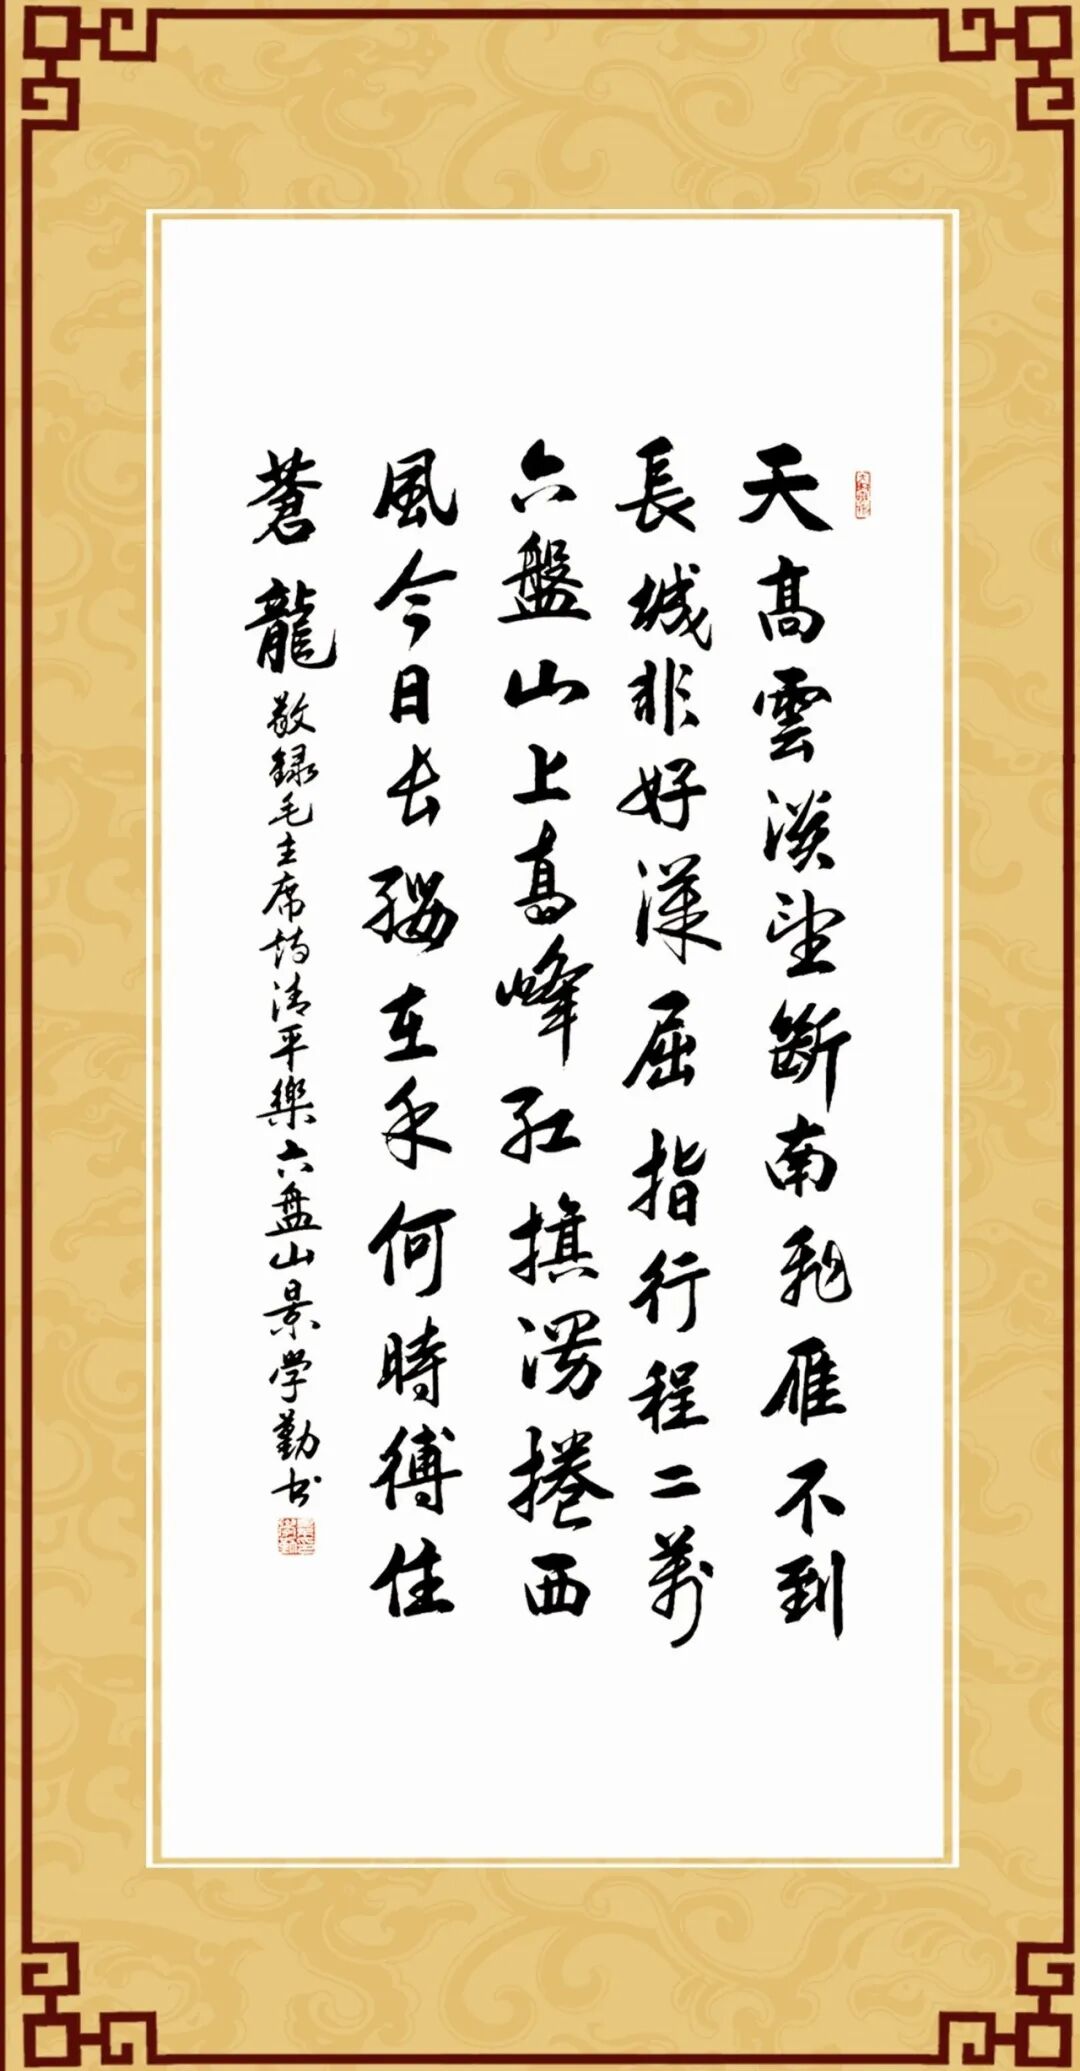 天髙雲淡望斷南飛雁不到
長城非好漢屈指行程二萬
六盤山上高峰紅旗漫捲西
風今日长纓在手何時縛住
蒼龍
敬録毛主席詩清平樂六盘山景学勤书